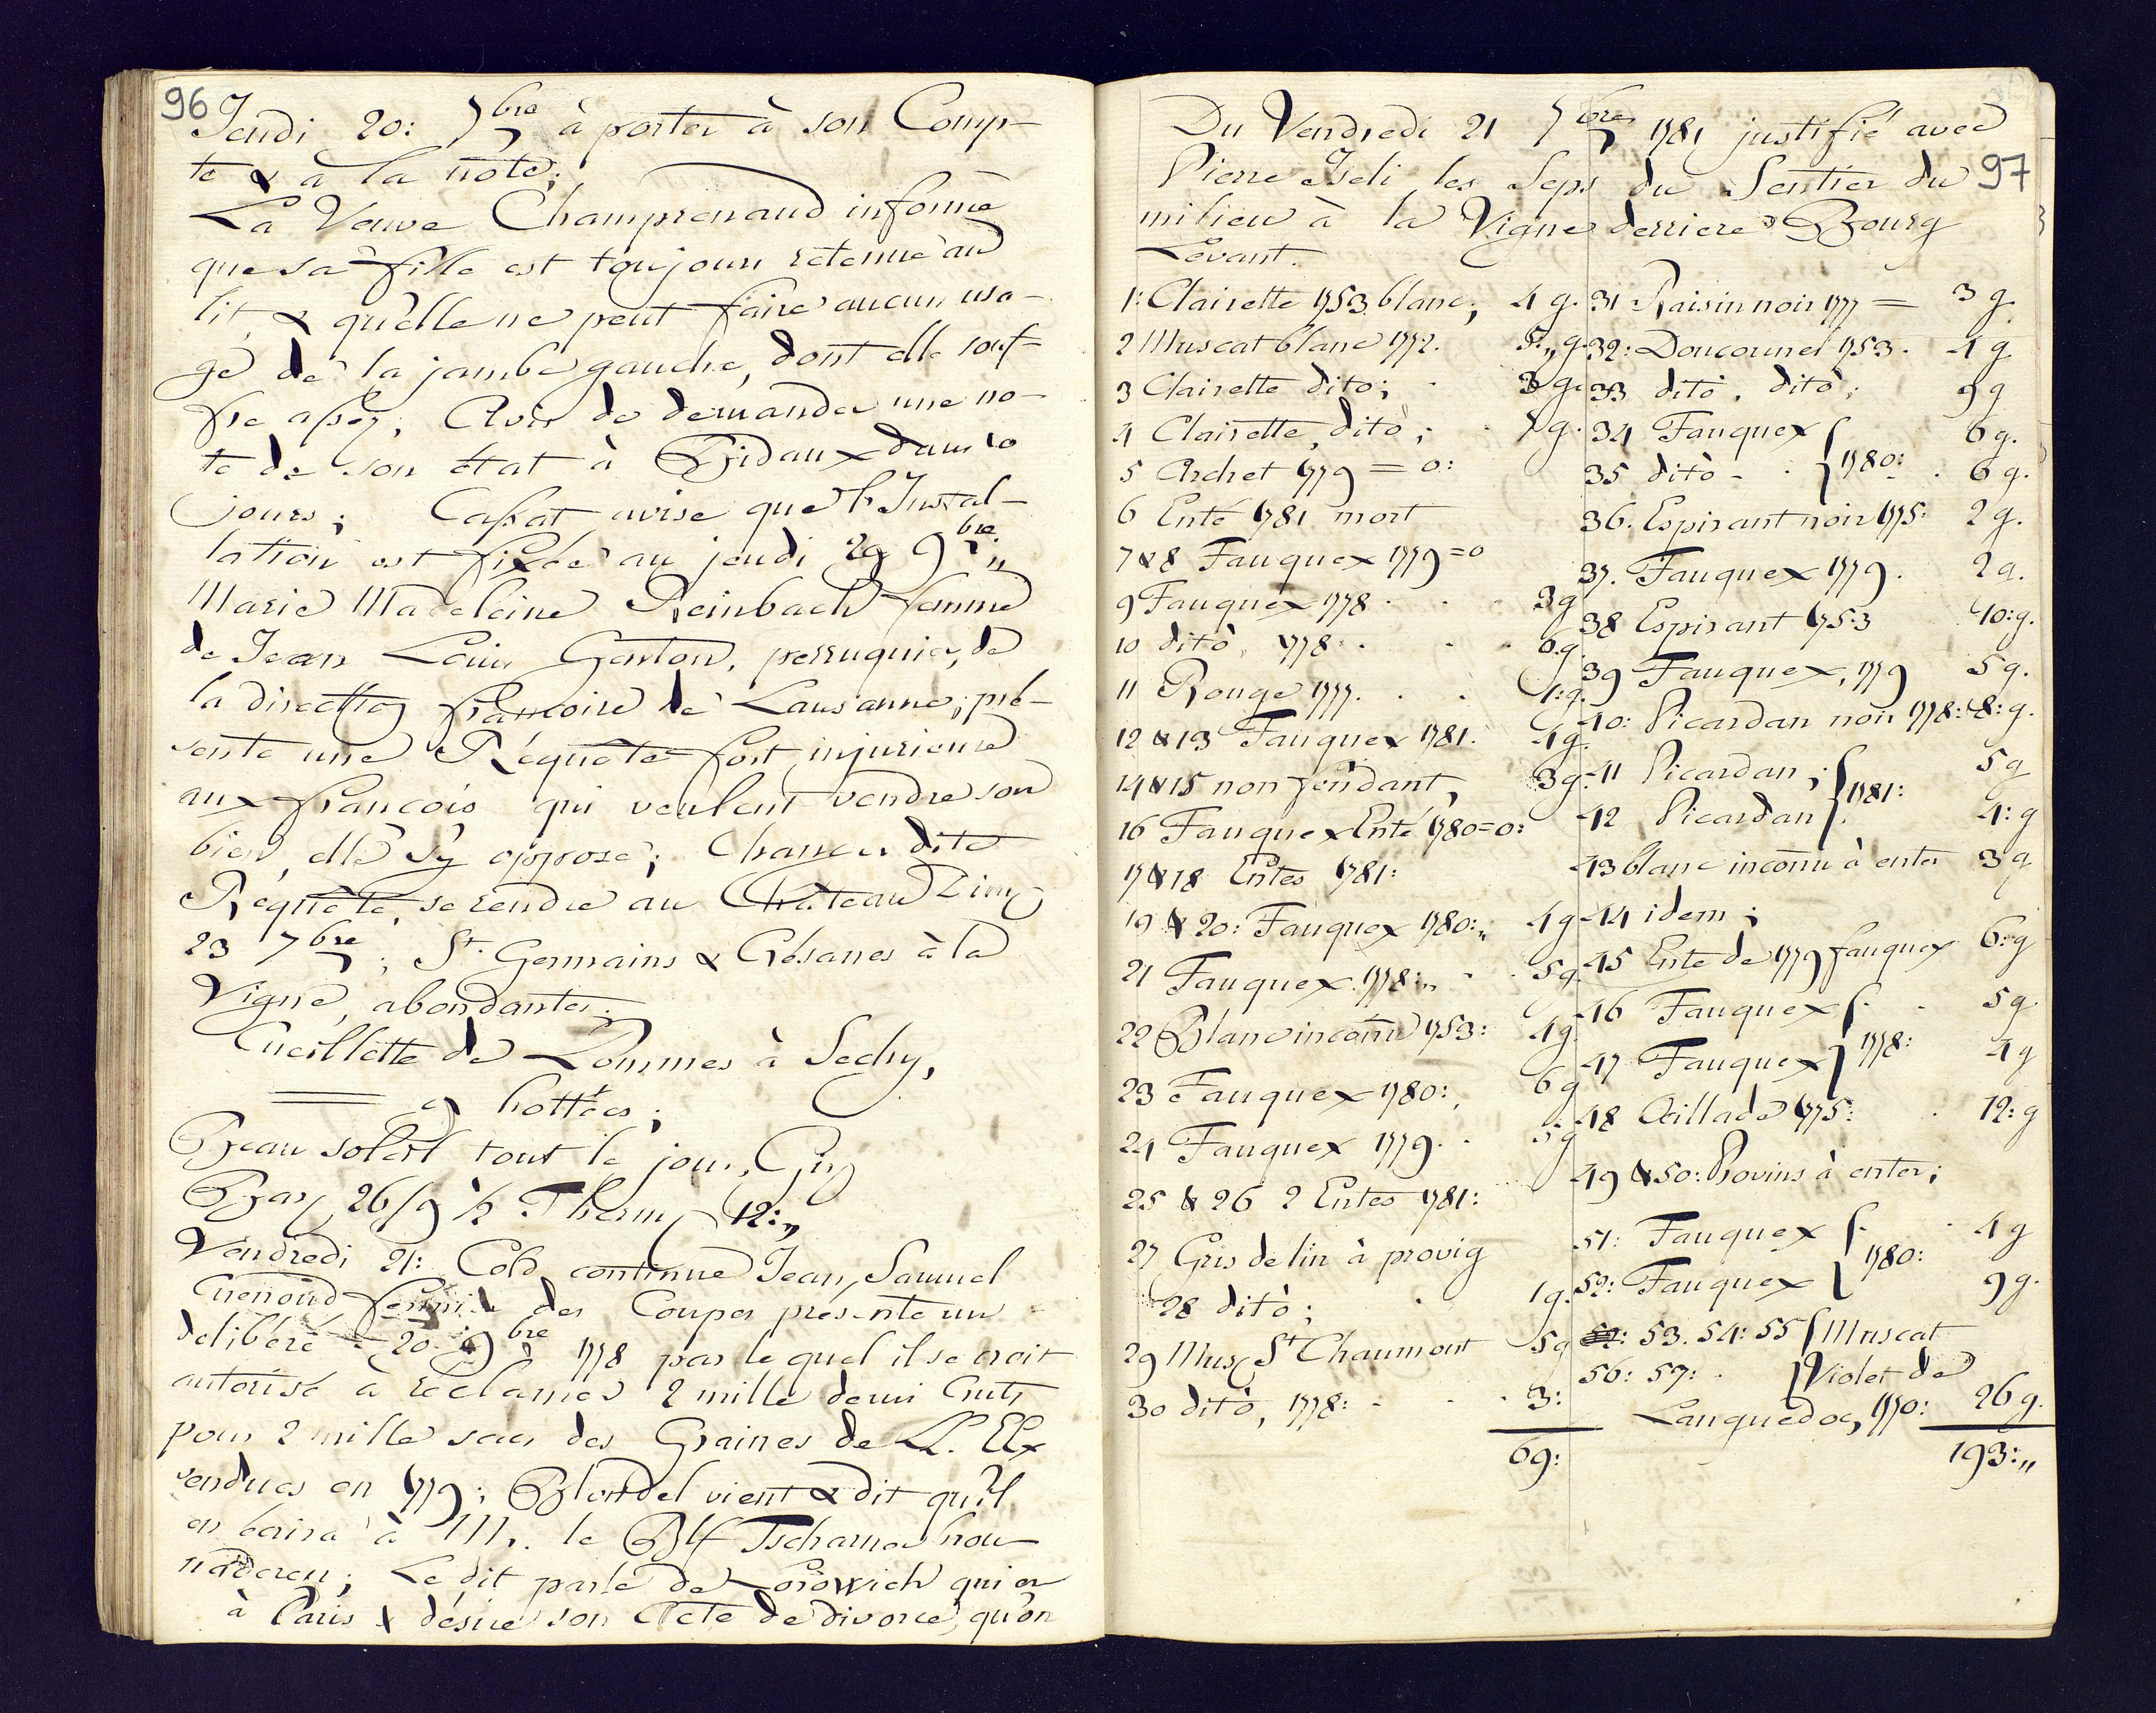 96
Jeudi 20: 7bre à porter à son Comp-
te & à la note;
La Veuve Champrenaud informe
que sa fille est toujours retenue au
lit, & qu'elle ne peut faire aucun usa-
ge de la jambe gauche, dont elle souf-
fre assez; Avis de demander une no-
te de son état à Bidaux dans 10
jours; Cassat avise que l'Instal-
lation est fixée au jeudi 29 9bre „
Marie Madeleine Reinbach femme
de Jean Louis Genton, perruquier, de
la direction françoise de Lausanne, pré-
sente une Réquête fort injurieuse
aux françois qui veulent vendre son
bien, elle s'y oppose; Changer dite
Réquête, se rendre au Château Dim
23 7bre; St. Germains & Césanes à la
Vigne, abondantes;
Cueillette de Pommes à Sechy,
9 hottées;
Beau soleil tout le jour,
Bar 26/9 ½ Therm 12: „
Vendredi 21: Cold continue Jean Samuel
Cuenoud des Coupes présente un
délibéré 20. 9bre 1778 par lequel il se croit
autorisé à réclamer 2 mille
pour 2 mille sacs des Graines de LL. EEx
vendues en 1779; Blondel vient & dit qu'il
en écrira à Mr. le Blf Tscharner
Le dit parle de qui est
à Paris & désire son Acte de divorce, qu'on
Du Vendredi 21 7bre 1781 justifié avec
97
Pierre Iseli les Seps du Sentier du
milieu à la Vigne derriere Bourg
Levant.
1: Clairette 1753 blanc; 4 g.
2 Muscat blanc 1772. 5 „ g.
3 Clairette dito; 3 g.
4 Clairette, dito; 7 g.
5 Ardret 1779 = 0:
6 Enté 1781 mort
7 & 8 Fauquex 1779 = 0
9 Fauquex 1778 3 g
10 dito, 1778: 6 g.
11 Rouge 1777. 1: g.
12 & 13 Fauquex 1781. 4 g.
14 & 15 non fendant, 3 g.
16 Fauquex Enté 1780 = 0:
17 & 18 Entes 1781:
19 & 20: Fauquex 1780: „ 4 g
21 Fauquex 1778: „ 5 g.
22 Blanc inconnu 1753: 4 g.
23 Fauquex 1780: 6 g
24 Fauquex 1779. 5 g
25 & 26 2 Entes 1781:
27 Gris de lin à provig
28 dito; 1 g.
29 Musc St Chaumont 5 g
30 dito, 1778: 3:
69:
31 Raisin noir 1777 = 3 g.
32: Doucournel 1753. 4 g
33 dito. dito; 9 g
34 Fauquex 6 g.
35 dito - 1780: 6 g.
36. Espirant noir 1775: 2 g.
37. Fauquex 1779. 2 g.
38 Espirant 1753 10: g.
39 Fauquex, 1779 5 g.
40: Picardan noir 1778: 8: g.
41 Picardan; 5 g
42 Picardan 1781: 4: g
43 blanc inconnu à enter 3 g
44 idem;
45 Ente de 1779 fauquex 6: g
46 Fauquex 5 g
47 Fauquex 1778: 4 g
48 Œillade 1775: 12: g
49 & 50: Provins à enter;
51: Fauquex 4 g
52: Fauquex 1780: 9 g.
52: 53. 54: 55 Muscat
56: 57: Violet de
Languedoc, 1770: 26 g.
193: „